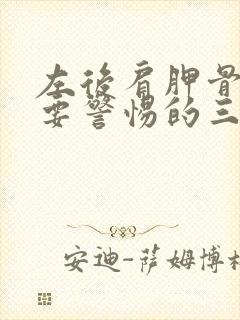 左後肩胛骨
要警惕的三
安迪-萨姆博